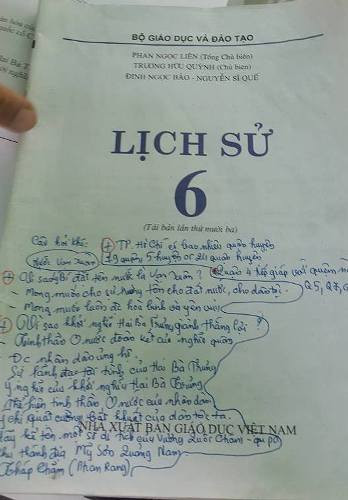 BỘ GIÁO DỤC VÀ ĐÀO TẠO
PHAN NGỌC LIÊN (Tổng Chủ biên)
TRƯƠNG HỮU QUÝNH (Chủ biên)
ĐINH NGỌC BẢO - NGUYỄN SĨ QUẾ
LỊCH SỬ
6
(Tái bản lần thứ mười ba)
Câu hỏi khó: + TP. Hồ Chí có bao nhiêu quận huyện
nước Vạn Xuân 19 quận 5 huyện or 24 quận huyện
+ Vì sao Lý Bí đặt tên nước là Vạn Xuân? Quận 4 tiếp giáp với quận
- Mong muốn cho sự trường tồn cho đất nước, cho dân tộc.
- Mong muốn luôn đc hòa bình và yên vui.
+ Vì sao khởi nghĩa Hai Bà Trưng giành thắng lợi?
- Tinh thần đoàn kết của nghĩa quân
- Đc nhân dân ủng hộ.
Sự lãnh đạo tài tình của Hai Bà Trưng
Ý nghĩa của khởi nghĩa Hai Bà Trưng
Thể hiện tinh thần nước của nhân dân
ý chí quật cường bất khuất của dân tộc ta.
NHÀ XUẤT BẢN GIÁO DỤC VIỆT NAM
kể tên một số di tích của vương Quốc Cham-pa
thánh địa Mỹ Sơn Quảng Nam
Tháp Chăm (Phan Rang)